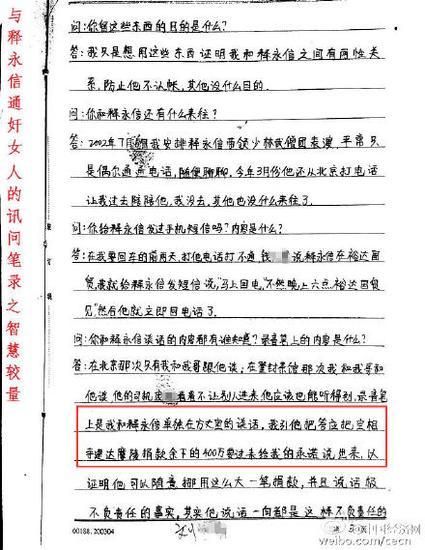 与释永信通奸女人的讯问笔录之智慧较量
问:你留这些东西的目的是什么?
答:我只是想用这些东西证明我和释永信之间有两性关
系,防止他不认帐,其他没什么目的.
问:你和释永信还有什么来往?
答:2002年7月 我安排释永信带领少林武僧团表演,平常只
是偶尔通通电话,随便聊聊,今年3月份他还从北京打电话
让我过去陪陪他,我没去,其他也没什么来往了.
问:你给释永信发过手机短信吗?内容是什么?
答:在我要回车的前两天,打他电话打不通 说,释永信在裕达国
贸,我就给释永信发短信说,"马上回电,不然晚上六点,裕达国贸
见"然后他就立即回电话了.
问:你和释永信谈话的内容都有谁知道?录音笔上的内容是什么?
答:在北京那次只有我和我哥跟他谈,在登封果馆那次我和我哥和
他谈,他的司机 看着不让别人进来,他应该也能听得到,录音笔
上是我和释永信单独在方丈室的谈话,我引他把答应把空相
寺建达摩院捐款余下的400万要过来给我的承诺说出来,以
证明他可以随意挪用这么大一笔捐款,并且说话极
不负责任的事实,其实他说话一向都是这样不负责任的
00188.200304
第 5 页
中国经济网
weibo.com/cecn